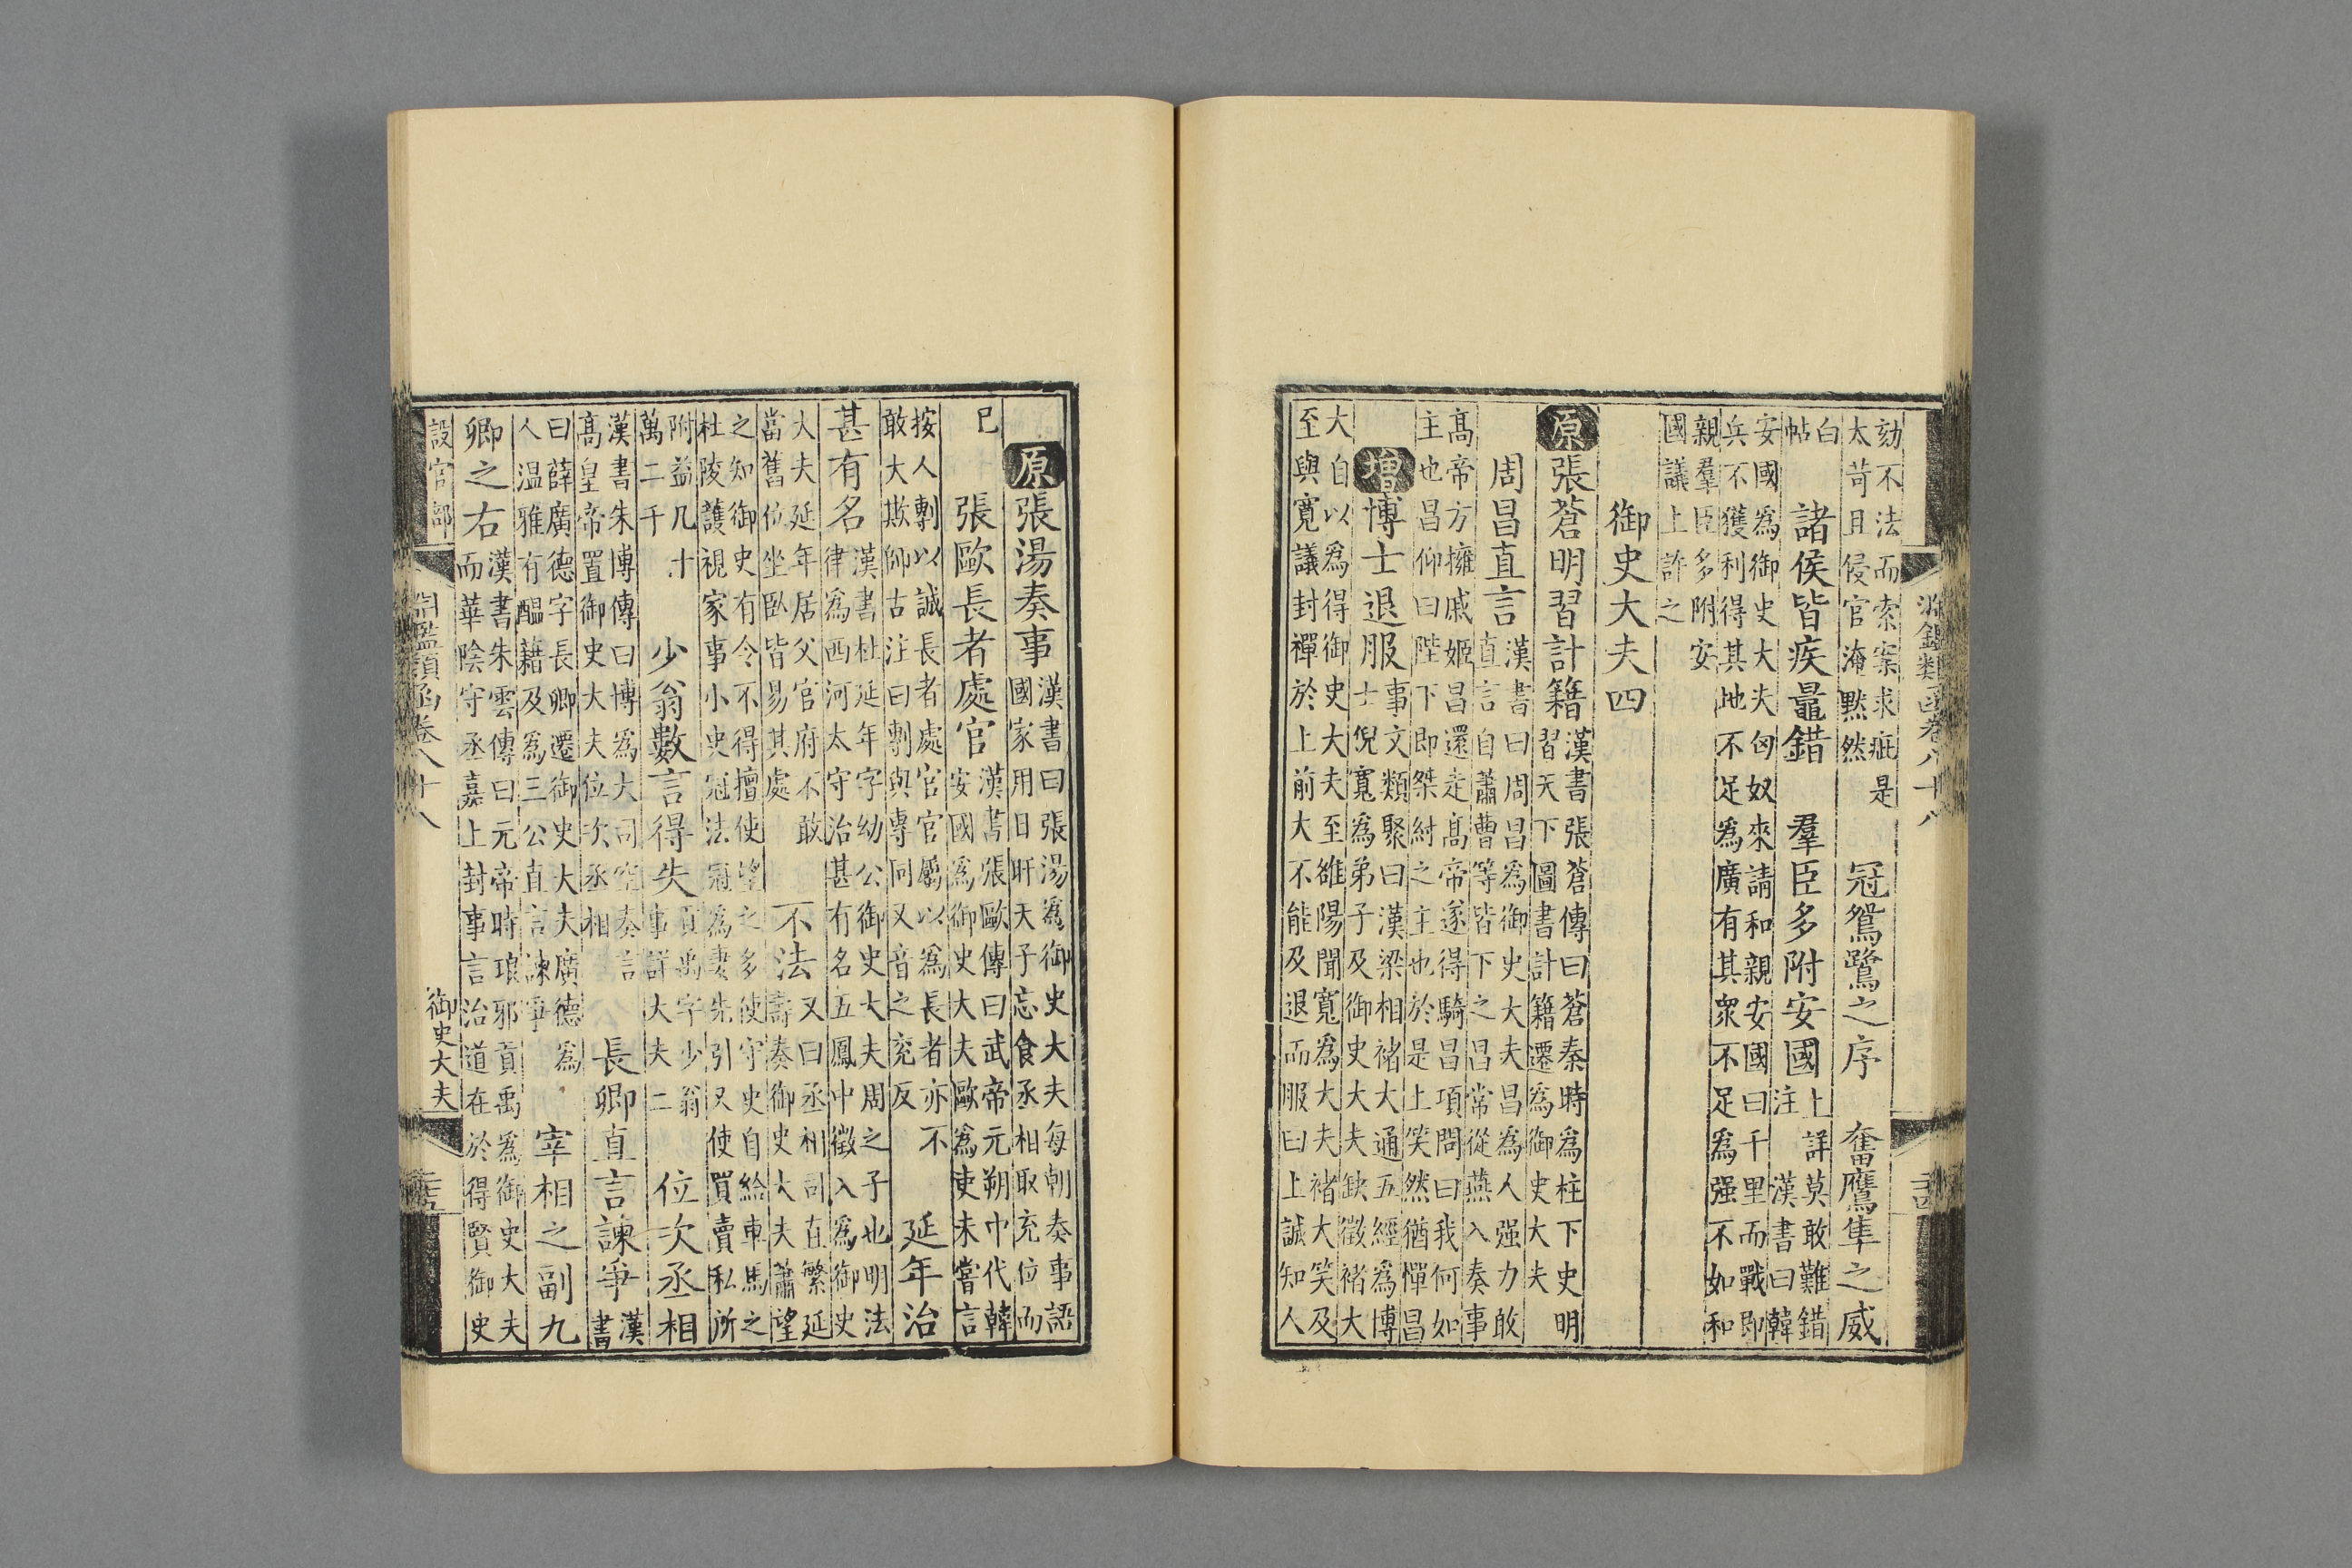 淵鑑類函卷八十八
二十四
劾不法而索案求疵是
太苛且侵官淹黙然
冠鴛鷺之序　奮鷹隼之威
白帖
諸侯皆疾鼂錯　羣臣多附安國
上詳莫敢難錯
注漢書曰韓
安國爲御史大夫匈奴來請和親安國曰千里而戰即
兵不獲利得其地不足爲廣有其衆不足爲强不如和
親羣臣多附安
國議上許之
御史大夫四
原張蒼明習計籍
漢書張蒼傳曰蒼秦時爲柱下史明
習天下圖書計籍遷爲御史大夫
周昌直言
漢書曰周昌爲御史大夫昌爲人强力敢
直言自蕭曹等皆下之昌常從燕入奏事
高帝方擁戚姬昌還走高帝遂得騎昌項問曰我何如
主也昌仰曰陛下即桀紂之主也於是上笑然猶憚昌
增博士退服
事文類聚曰漢梁相褚大通五經爲博
士倪寬爲弟子及御史大夫缺徵褚大
大自以爲得御史大夫至雒陽聞寬爲大夫褚大笑及
至與寬議封禪於上前大不能及退而服曰上誠知人
原張湯奏事
漢書曰張湯爲御史大夫每朝奏事語
國家用日旰天子忘食丞相取充位而
已
張歐長者處官
漢書張歐傳曰武帝元朔中代韓
安國爲御史大夫歐爲吏未嘗言
按人剸以誠長者處官官屬以爲長者亦不
敢大欺師古注曰剸與專同又音之兖反
延年治
甚有名
漢書杜延年字幼公御史大夫周之子也明法
律爲西河太守治甚有名五鳳中徵入爲御史
大夫延年居父官府不敢
當舊位坐臥皆易其處
不法
又曰丞相司直繁延
壽奏御史大夫蕭望
之知御史有令不得擅使望之多使守史自給車馬之
杜陵護視家事小史冠法冠爲妻先引又使買賣私所
附益凡十
萬二千
少翁數言得失
貢禹字少翁
事詳大夫二
位次丞相
漢書朱博傳曰博爲大司空奏言
高皇帝置御史大夫位次丞相
長卿直言諫爭
漢書
曰薛廣德字長卿遷御史大夫廣德爲
人温雅有醖藉及爲三公直言諫爭
宰相之副九
卿之右
漢書朱雲傳曰元帝時琅邪貢禹爲御史大夫
而華陰守丞嘉上封事言治道在於得賢御史
設官部
淵鑑類函卷八十八
御史大夫
二十五